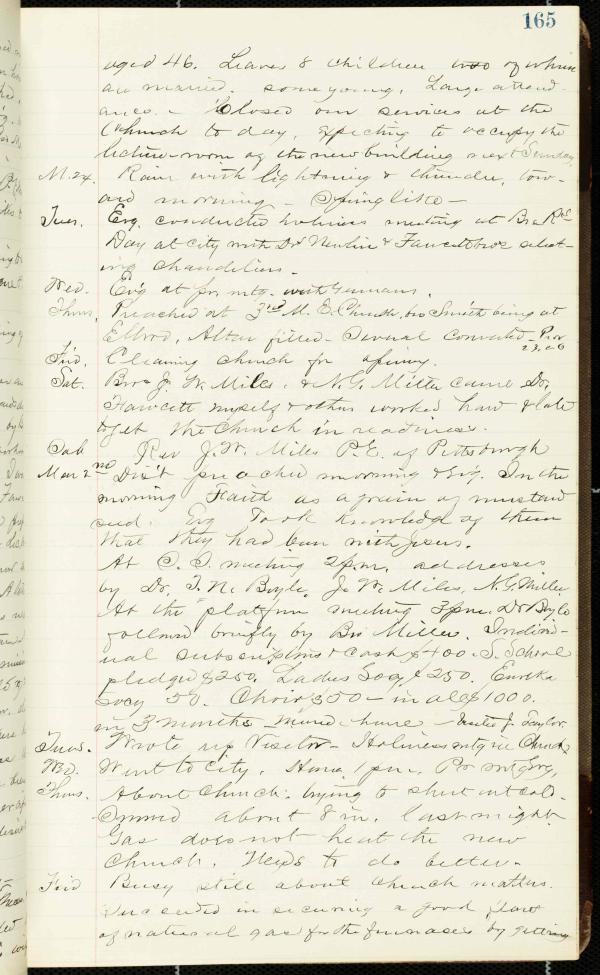 165
aged 46. Leaves 8 children two of whom
are married, some young. Large attend-
ance. - Closed our services at the
Church to day, expecting to occupy the
lecture-room of the new building next Sunday
M. 24. Rain with lightning & thunder, tow-
ard morning - Spring like -
Tues. Evg. conducted holiness meeting at Bro
Day at City with Dr Newlin & Fawcett select-
ing chandeliers. -
Wed. Ev'g at pr. mtg. with Germans.
Thurs. Preached at 3rd M. E. Church, bro Smith being at
Altar filled - Several converted -
Frid. Cleaning church for opening.
Sat. Bros J. W. Miles, & N. G. Miller came Dr.
Fawcett myself & others worked hard & late
to get the Church in readiness.
Sab Rev J. W. Miles P. E. of Pittsburgh
Mar 2nd Dis't preached morning & Evg. In the
morning Faith as a grain of mustard
seed. Evg Took knowledge of them
that they had been with Jesus.
At S. S. meeting 2 pm. addresses
by Dr. T. N. Boyle, J. W. Miles, N. G. Miller
At the platform meeting 3 pm. Dr Boyle
followed briefly by Bro Miller. Individ-
ual subscriptions & cash $400. S. School
pledged $250. Ladies Socy $250. Eureka
Socy 50. Choir $50 - in all $1000.
in 3 months - J. Taylor.
Tues. Wrote up Visitor - Holiness mtg in Church
Wed. Went to City. Home 1 pm. Pr mt Evg.
Thurs. About Church. trying to shut out cold.
Snowed about 8 in. last night
Gas does not heat the new
Church. Needs to do better. -
Frid Busy still about church matters.
Succeeded in securing a good flow
of natural gas for the furnaces by getting